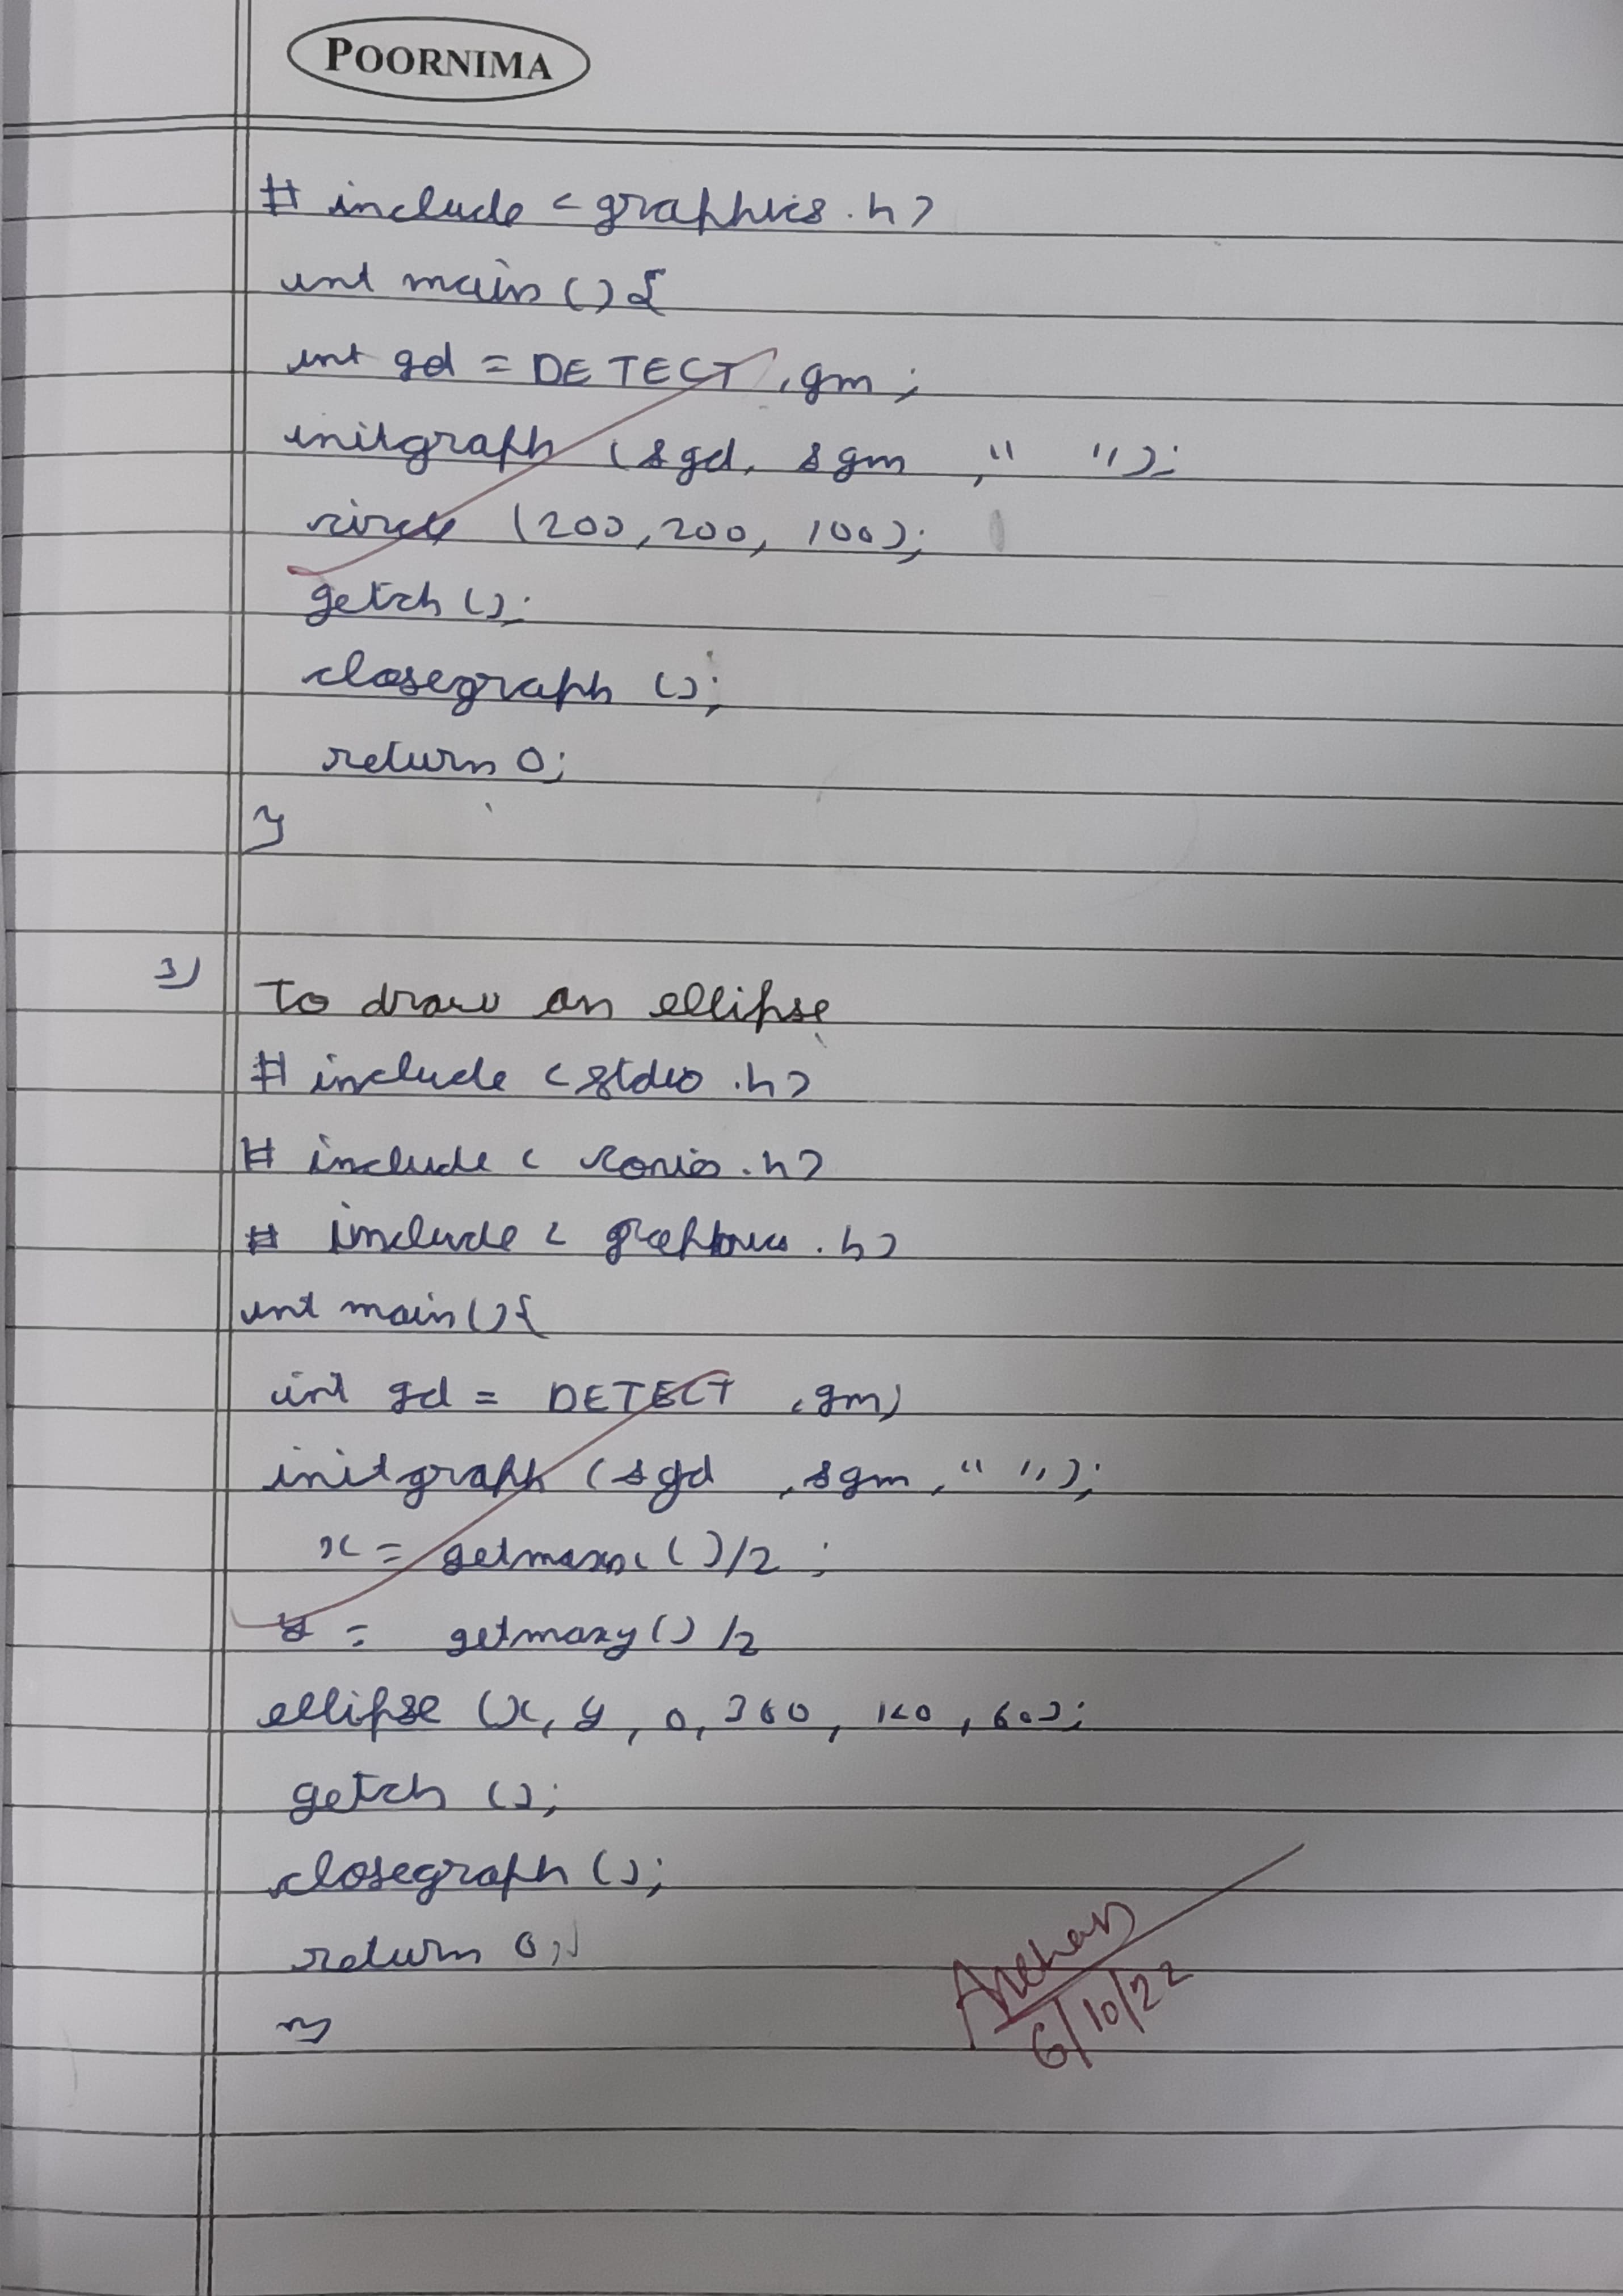 POORNIMA
# include <graphics.h>
int main () {
int gd = DETECT , gm ;
initgraph (&gd, &gm , " ");
circle (200, 200, 100);
getch ();
closegraph ();
return 0;
}
3) To draw an ellipse
# include <stdio.h>
# include < conio.h>
# include < graphics.h>
int main () {
int gd = DETECT , gm ;
initgraph (&gd , &gm , " ");
x = getmaxx ()/2 ;
y = getmaxy () /2
ellipse (x, y, 0, 360, 120, 60);
getch ();
closegraph ();
return 0;
}
6/10/22